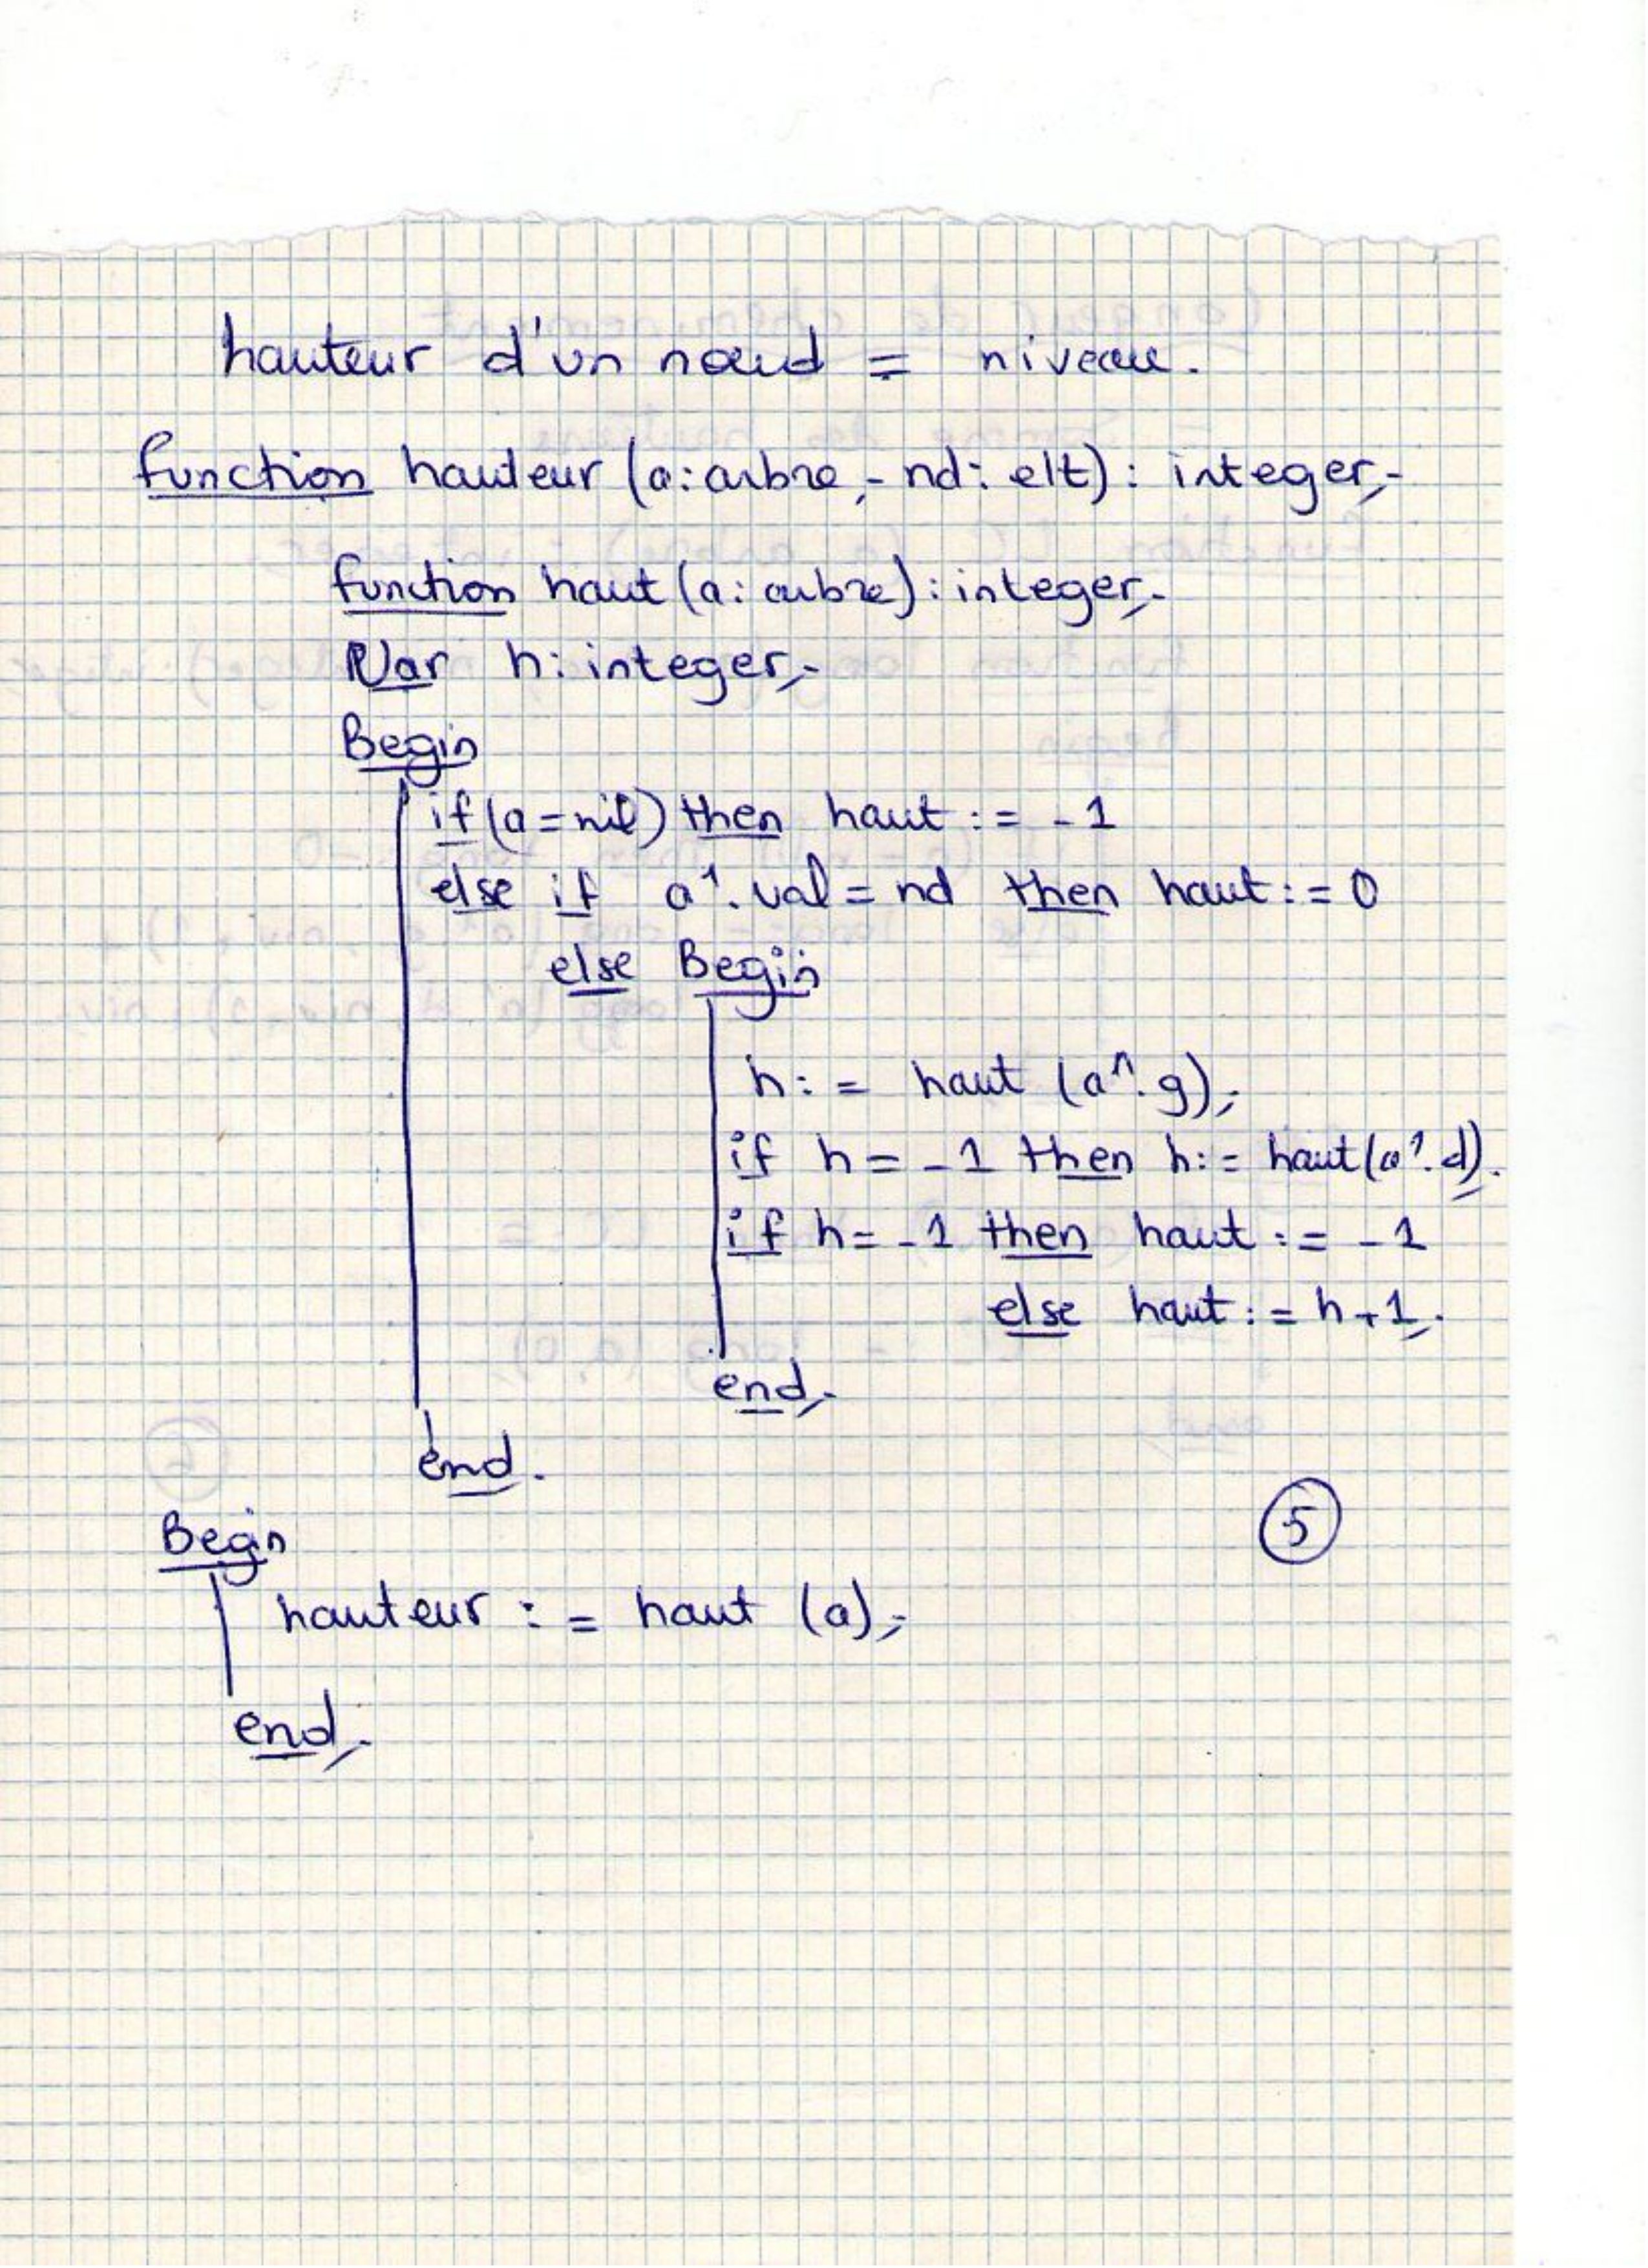 hauteur d'un nœud = niveau.
function hauteur (a: arbre; nd: elt): integer;
function haut (a: arbre): integer;
Var h: integer;
Begin
if (a = nil) then haut := -1
else if a^.val = nd then haut := 0
else Begin
h := haut (a^.g);
if h = -1 then h := haut(a^.d);
if h = -1 then haut := -1
else haut := h+1;
end;
end.
5
Begin
hauteur := haut (a);
end;